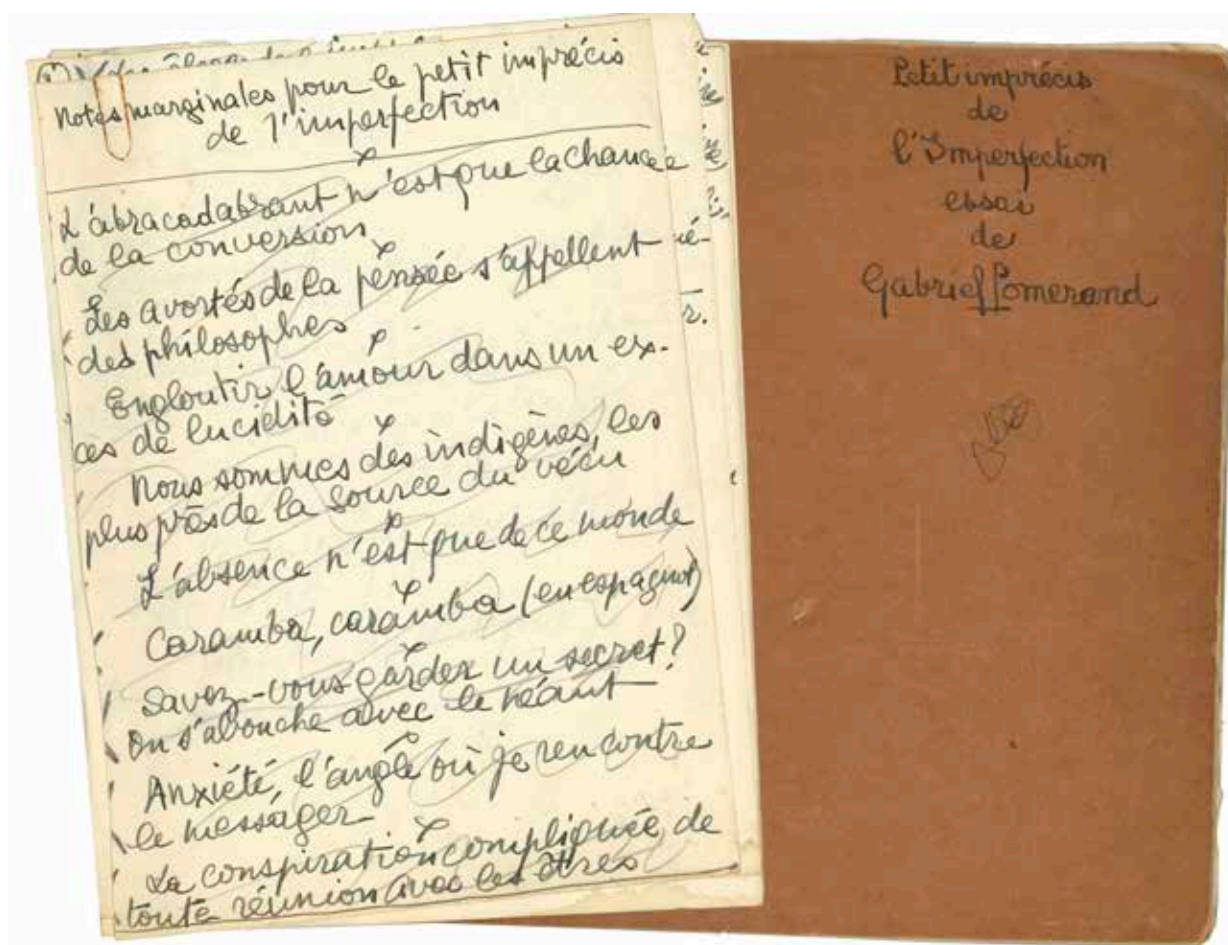 Notes marginales pour le petit imprécis
de l'imperfection
L'abracadabrant n'est que la chance
de la conversion
Les avortés de la pensée s'appellent
des philosophes
Engloutir l'amour dans un ex-
cès de lucidité
Nous sommes des indigènes, les
plus près de la source du vécu
L'absence n'est que de ce monde
Caramba, caramba (en espagnol)
Savez-vous garder un secret?
On s'abouche avec le néant
Anxiété, l'angle où je rencontre
le messager
La conspiration compliquée de
toute réunion avec les êtres
Petit imprécis
de
l'Imperfection
essai
de
Gabriel Pomerand